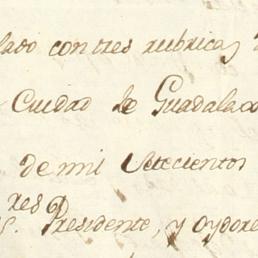 lado con tres rubricas
Cuidad de Guadalax
de mil Setecientos
res
s. Presidente, y Oydore